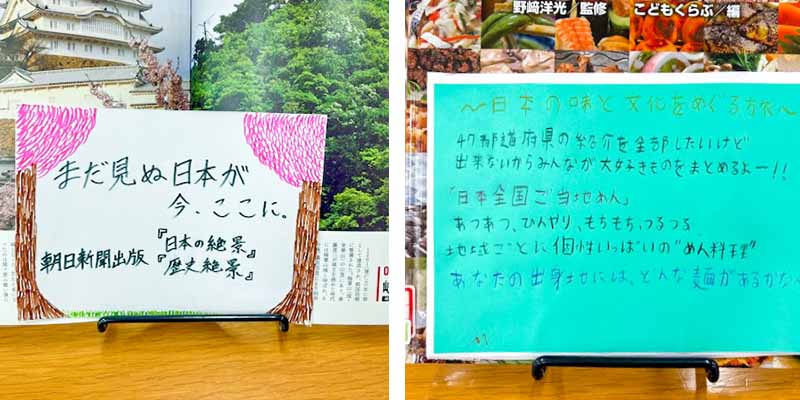 まだ見ぬ日本が
今、ここに。
朝日新聞出版
『日本の絶景』
『歴史絶景』
野﨑洋光 監修
こどもくらぶ/編
～日本の味と文化をめぐる旅～
47都道府県の紹介を全部したいけど
出来ないからみんなが大好きものをまとめるよー!!
「日本全国ご当地めん」
あつあつ、ひんやり、もちもち、つるつる
地域ごとに個性いっぱいの"めん料理"
あなたの出身地には、どんな麺があるかな